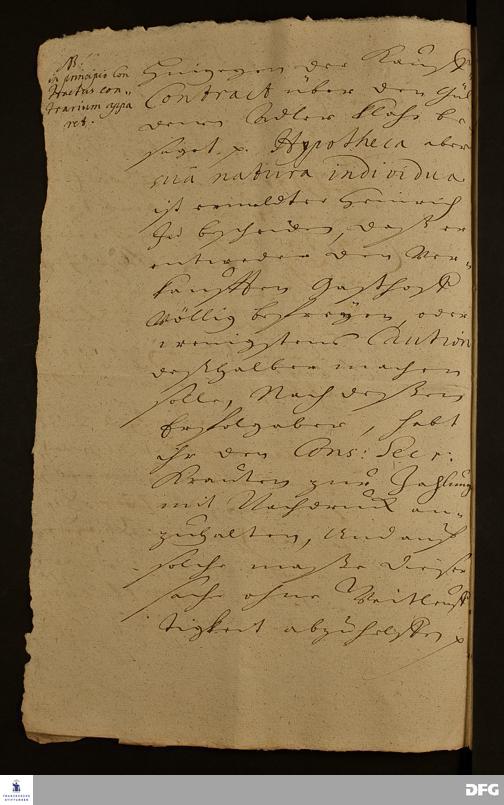 NB.
in principio Con
tractus con-
trarium appa
ret.
Hingegen der Kauff
Contract über den Gül
denen Adler klahr be
saget. p. Hypotheca aber
suâ natura individua
ist ermeldter Heinrich
zu bescheiden, daß er
entweder den ver-
kaufften Gasthoff
völlig befreyen, oder
wenigstens Caution
deßhalber machen
solle, Nach deßen
Erfolg aber, habt
ihr den Cons: Secr:
Krauten zur Zahlung
mit Nachdruck an-
zuhalten, und auf
solche maße dieser
sache ohne Weitleuff
tigkeit abzuhelffen p
FRANCKESCHE
STIFTUNGEN
DFG